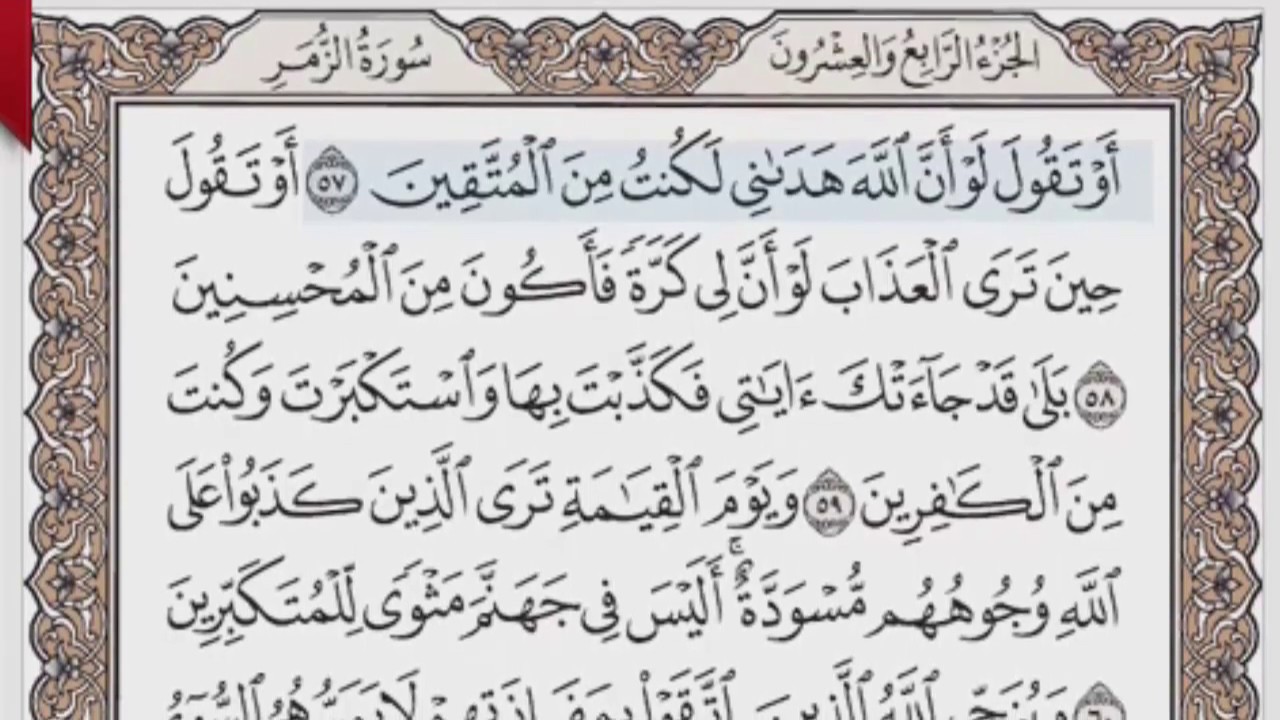 الجُزْءُ الرَّابِعُ وَالعِشْرُونَ
سُورَةُ الزُّمَرِ
أَوْ تَقُولَ لَوْ أَنَّ ٱللَّهَ هَدَىٰنِى لَكُنتُ مِنَ ٱلْمُتَّقِينَ ٥٧ أَوْ تَقُولَ
حِينَ تَرَى ٱلْعَذَابَ لَوْ أَنَّ لِى كَرَّةً فَأَكُونَ مِنَ ٱلْمُحْسِنِينَ
٥٨ بَلَىٰ قَدْ جَآءَتْكَ ءَايَٰتِى فَكَذَّبْتَ بِهَا وَٱسْتَكْبَرْتَ وَكُنتَ
مِنَ ٱلْكَٰفِرِينَ ٥٩ وَيَوْمَ ٱلْقِيَٰمَةِ تَرَى ٱلَّذِينَ كَذَبُوا۟ عَلَى
ٱللَّهِ وُجُوهُهُم مُّسْوَدَّةٌ ۚ أَلَيْسَ فِى جَهَنَّمَ مَثْوًى لِّلْمُتَكَبِّرِينَ
٦٠ وَيُنَجِّى ٱللَّهُ ٱلَّذِينَ ٱتَّقَوْا۟ بِمَفَازَتِهِمْ لَا يَمَسُّهُمُ ٱلسُّوٓءُ